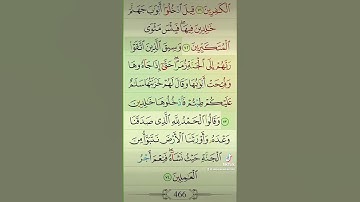 ٱلْكَٰفِرِينَ ٧١ قِيلَ ٱدْخُلُوٓا۟ أَبْوَٰبَ جَهَنَّمَ
خَٰلِدِينَ فِيهَا ۖ فَبِئْسَ مَثْوَى
ٱلْمُتَكَبِّرِينَ ٧٢ وَسِيقَ ٱلَّذِينَ ٱتَّقَوْا۟
رَبَّهُمْ إِلَى ٱلْجَنَّةِ زُمَرًا ۖ حَتَّىٰٓ إِذَا جَآءُوهَا
وَفُتِحَتْ أَبْوَٰبُهَا وَقَالَ لَهُمْ خَزَنَتُهَا سَلَٰمٌ
عَلَيْكُمْ طِبْتُمْ فَٱدْخُلُوهَا خَٰلِدِينَ
٧٣ وَقَالُوا۟ ٱلْحَمْدُ لِلَّهِ ٱلَّذِى صَدَقَنَا
وَعْدَهُۥ وَأَوْرَثَنَا ٱلْأَرْضَ نَتَبَوَّأُ مِنَ
ٱلْجَنَّةِ حَيْثُ نَشَآءُ ۖ فَنِعْمَ أَجْرُ
ٱلْعَٰمِلِينَ ٧٤
466